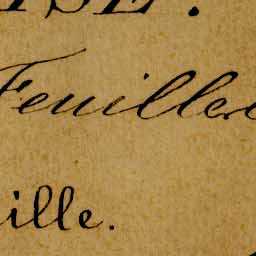 ISE.
Feuillere
ille.